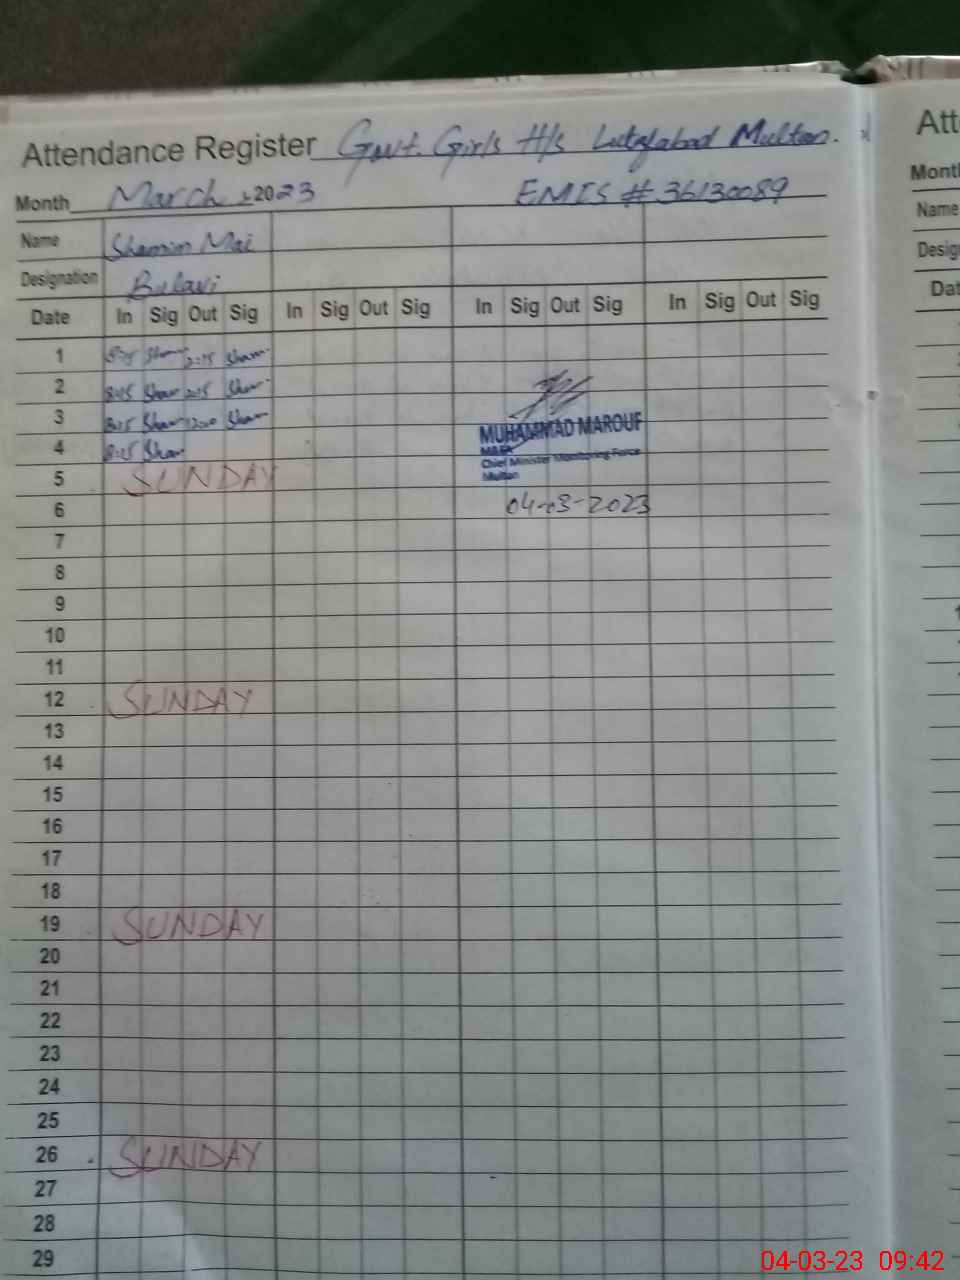 Attendance Register Govt. Girls H/s Lutafabad Multan.
Month March 2023 EMIS # 36130089
Name Shamim Mai
Designation Bulavi
Date In Sig Out Sig In Sig Out Sig In Sig Out Sig In Sig Out Sig
1 8:15 Sham 2:15 Sham
2 8:15 Sham 2:15 Sham
3 8:15 Sham 12:00 Sham
4 8:15 Sham
MUHAMMAD MAROUF
MEA
Chief Minister Monitoring Force
Multan
5 SUNDAY
6 04-03-2023
7
8
9
10
11
12 SUNDAY
13
14
15
16
17
18
19 SUNDAY
20
21
22
23
24
25
26 SUNDAY
27
28
29
Att
Month
Name
Desig
Dat
04-03-23 09:42